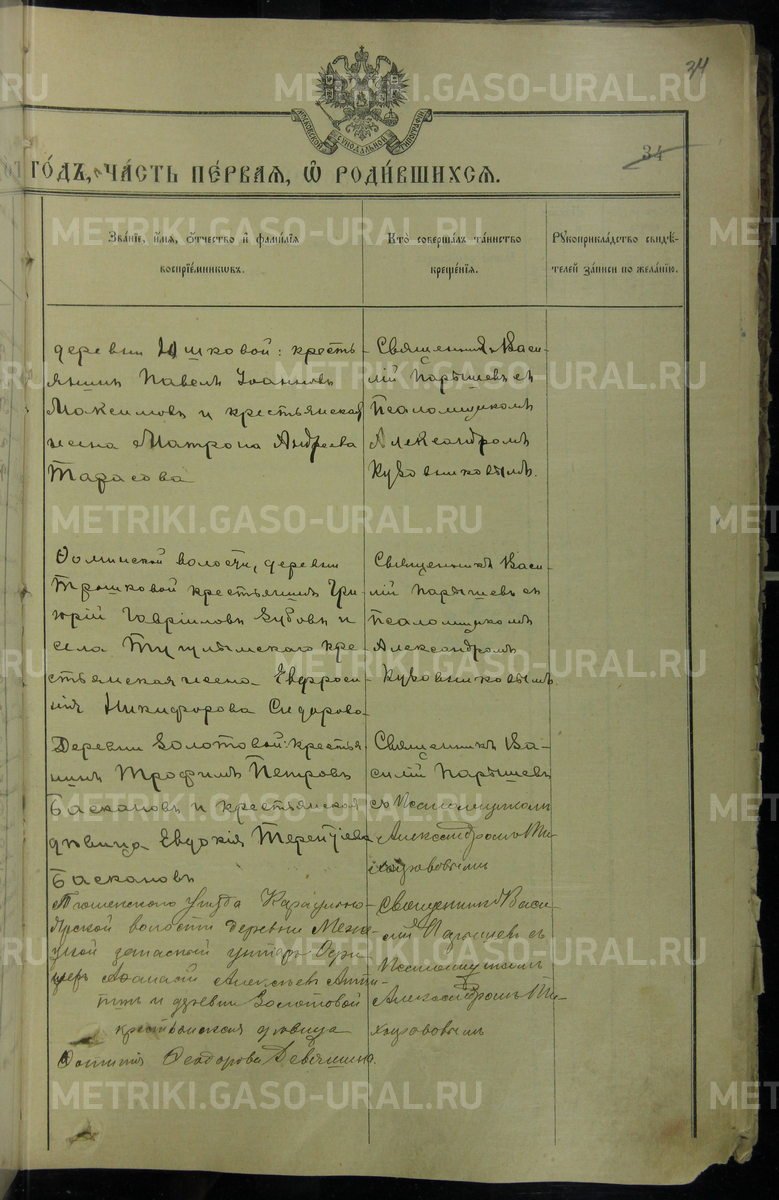 34
METRIKI.GASO-URAL.RU
34
ГОДЪ, ЧАСТЬ ПЕРВАЯ, Ѡ РОДИВШИХСЯ.
Званіе, имя, отчество и фамилія воспріемниковъ.
Кто совершалъ таинство крещенія.
Рукоприкладство свидѣтелей записи по желанію.
деревни Юшковой: кресть-
янинъ Павелъ Іоанновъ
Максимовъ и крестьянская
жена Матрона Андреева
Тарасова
Священникъ Васи-
лій Парышевъ съ
Псаломщикомъ
Александромъ
Куковинковымъ
Ѳоминской волости, деревни
Трошковой крестьянинъ Гри-
горій Гавріиловъ Зубовъ и
села Тугулымскаго кре-
стьянская жена Евфроси-
нія Никифорова Сидорова
Священникъ Васи-
лій Парышевъ съ
Псаломщикомъ
Александромъ
Куковинковымъ
Деревни Золотовой: крестья-
нинъ Трофимъ Петровъ
Баскановъ и крестьянская
дѣвица Евдокія Терентіева
Басканова
Священникъ Ва-
силій Парышевъ
съ Псаломщикомъ
Александромъ
Тюменскаго уѣзда Караульно-
Ярской волости деревни
запасной унтеръ Офи-
церъ Аѳанасій Алексѣевъ
и деревни Золотовой
крестьянская дѣвица
Ѳеодорова Девяшина
Священникъ Васи-
лій Парышевъ съ
Псаломщикомъ
Александромъ